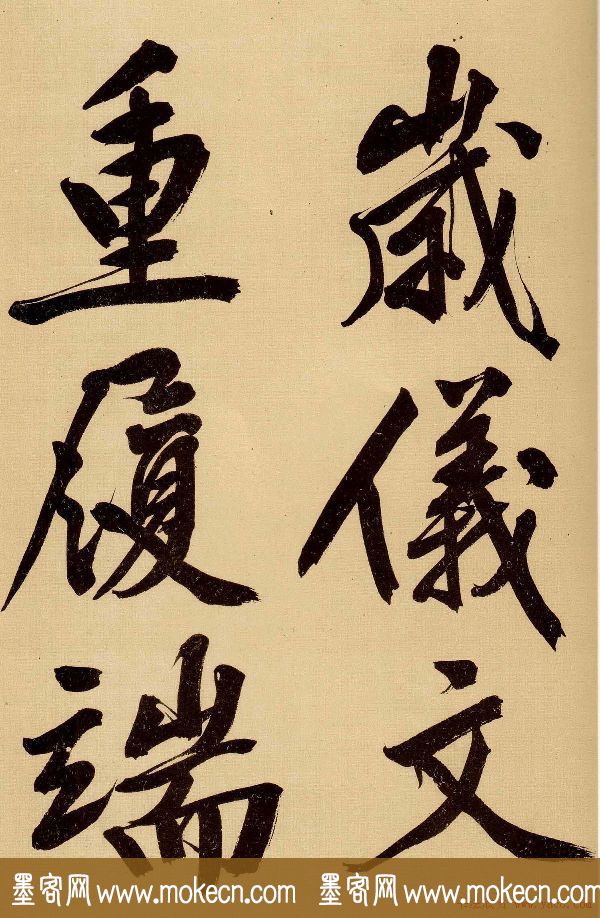 歲儀文
重履端
墨客网 www.mokecn.com 墨客网 www.mokecn.com